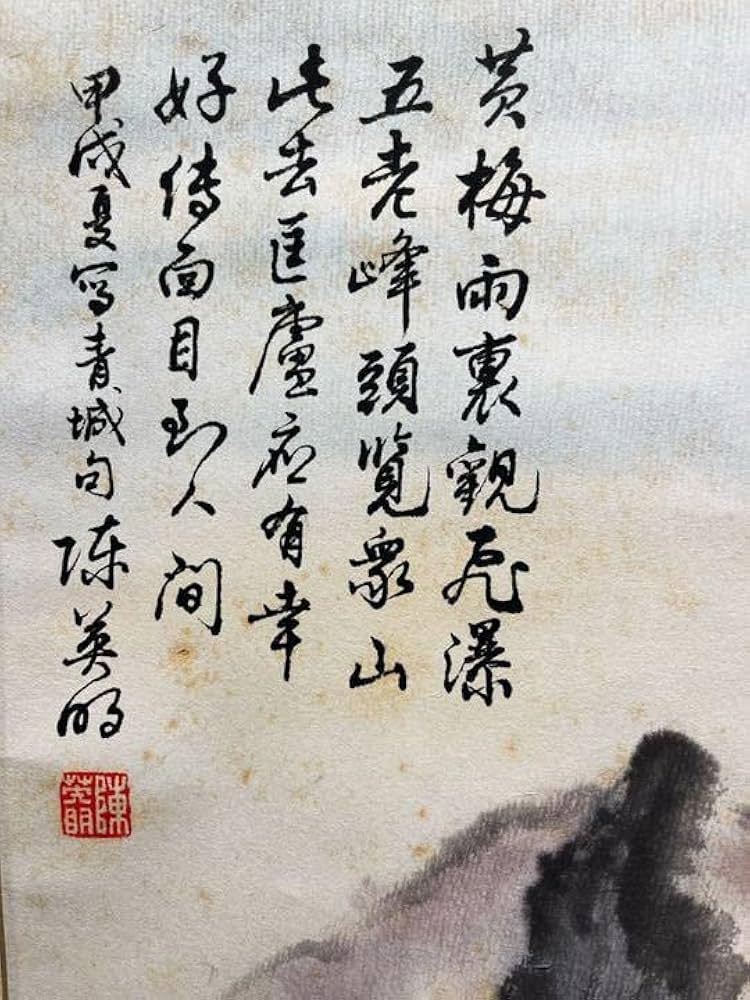 黄梅雨裏觀飛瀑
五老峰頭覽眾山
此去匡廬應有幸
好傳面目到人間
甲戌夏寫青城句陳英明
陳英明